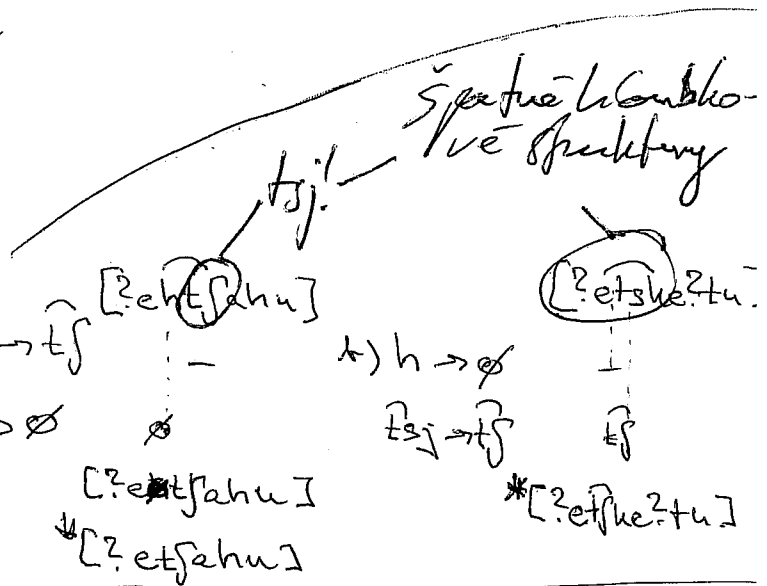 špatné hloubko-
vé struktury
tsj!
[ʔeht͡ʃahu]
[ʔet͡skeʔtu]
→ t͡ʃ
–
b) h → ∅
⊥
> ∅
∅
t͡sj → t͡ʃ
t͡ʃ
[ʔeht͡ʃahu]
*[ʔet͡ʃahu]
*[ʔet͡ʃkeʔtu]